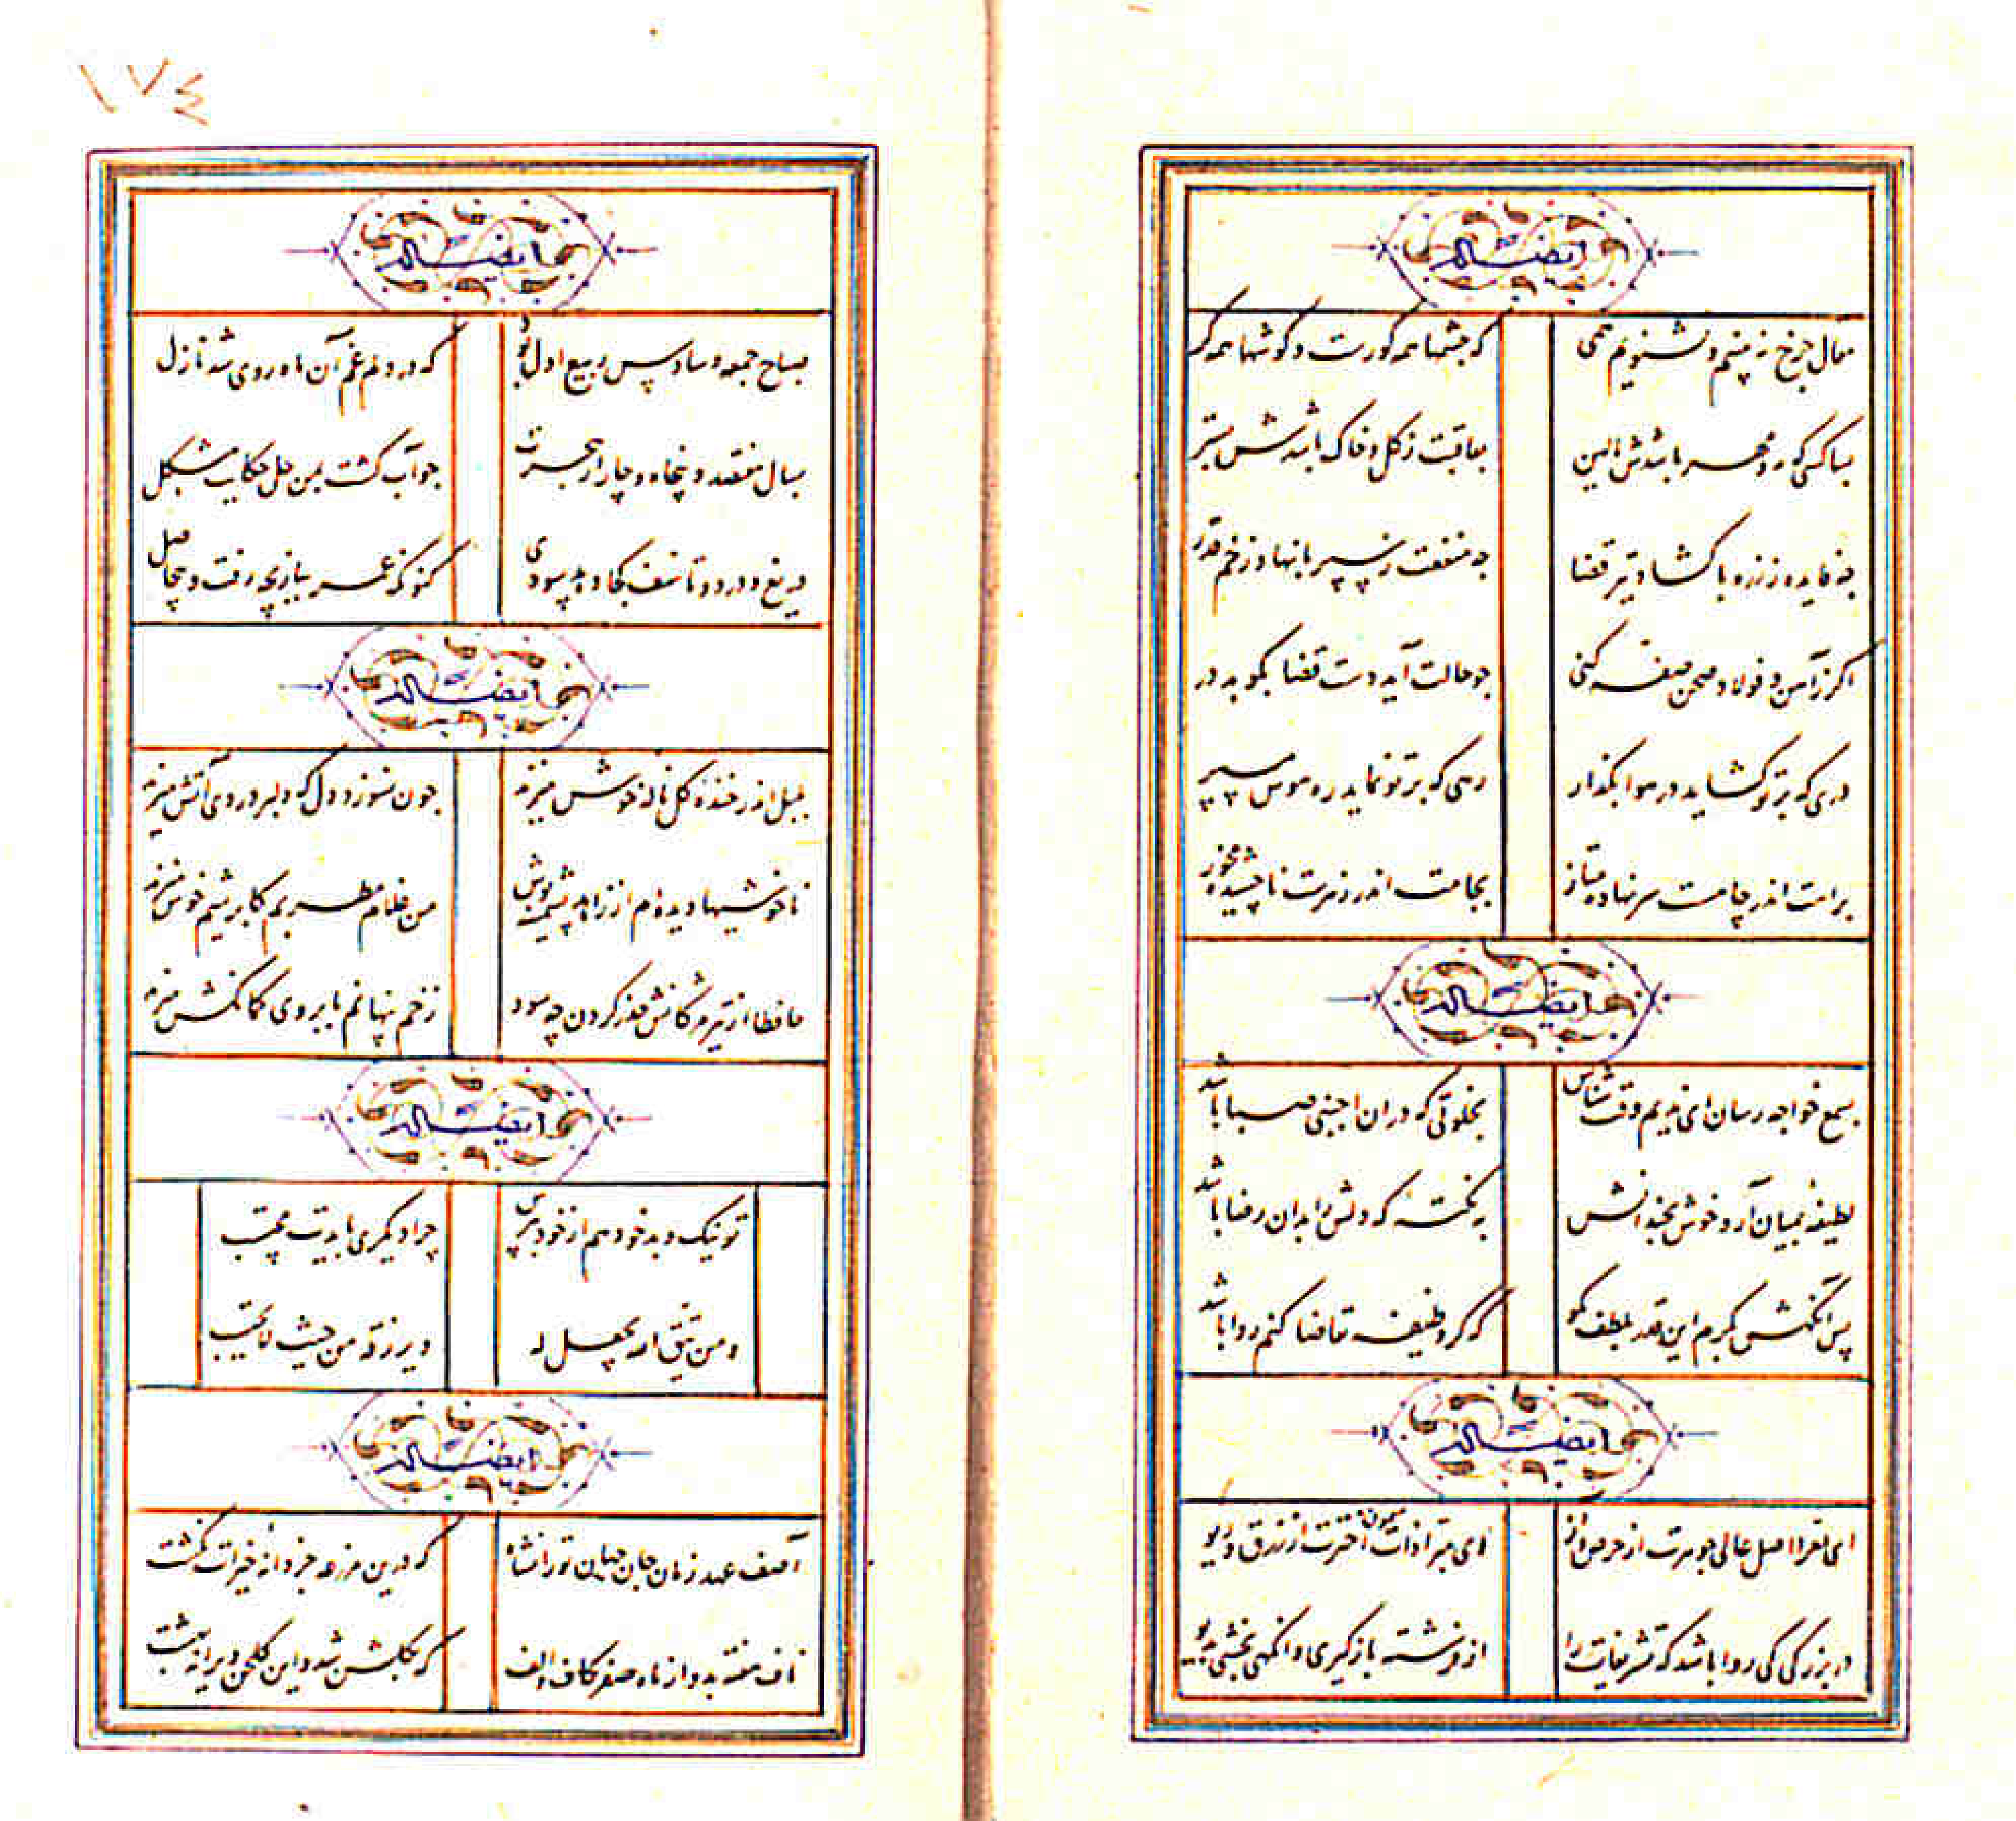 ایضاً له
فعال چرخ نه بینیم و نشنویم همی
که چشمها همه کورست و گوشها همه کر
بسا کسی که مه و مهر باشدش بالین
بعاقبت ز گل و خاک باشدش بستر
چه فایده ز زره با کشاد تیر قضا
چه منفعت ز سپر با نهاد زخم قدر
اگر ز آهن و فولاد صحن صفه کنی
چو حالت آید دست قضا بکوبد در
دری که بر تو کشاید در هوا بگذار
رهی که بر تو نماید ره هوس مسپر
براهت اندر چاهست سر نهاده متاز
بجامت اندر زهرست ناچشیده مخور
ایضاً له
بسمع خواجه رسان ای ندیم وقت شناس
بخلوتی که دران اجنبی صبا باشد
لطیفهٔ بمیان آر و خوش بخندانش
به نکتهٔ که دلش را بدان رضا باشد
پس آنگهش ز کرم این قدر بلطف بگو
که گر وظیفه تقاضا کنم روا باشد
ایضاً له
ای معرا اصل عالی جوهرت از حرص و آز
وی مبرا ذات میمون اخترت از زرق و ریو
در بزرگی کی روا باشد که تشریفات را
از فرشته باز گیری و آنگهی بخشی بدیو
١٧٤
ایضاً له
صباح جمعه و سادس ربیع اول بود
که در دلم غم آن ماه روی شد نازل
بسال هفتصد و پنجاه و چار از هجرت
چو آب گشت بمن حل حکایت مشکل
دریغ و درد و تاسف کجا دهد سودی
کنون که عمر ببازیچه رفت و بیحاصل
ایضاً له
بلبل اندر خنده گل ناله خوش میزند
چون نسوزد دل که دلبر در وی آتش میزند
ناخوشیها دیده‌ام از زاهد پشمینه پوش
من غلام مطربم کابریشم خوش میزند
حافظا از تیر مژگانش حذر کردن چه سود
زخم پنهانم بابروی کمانکش میزند
ایضاً له
تو نیک و بد خود هم از خود بپرس
چرا دیگری بایدت محتسب
و من یتق الله یجعل له
و یرزقه من حیث لا یحتسب
ایضاً له
آصف عهد زمان جان جهان تورانشاه
که درین مزرعه جز دانه خیرات نکشت
ناف هفته بد و از ماه صفر کاف و الف
که بگلشن شد و این گلخن ویرانه بهشت